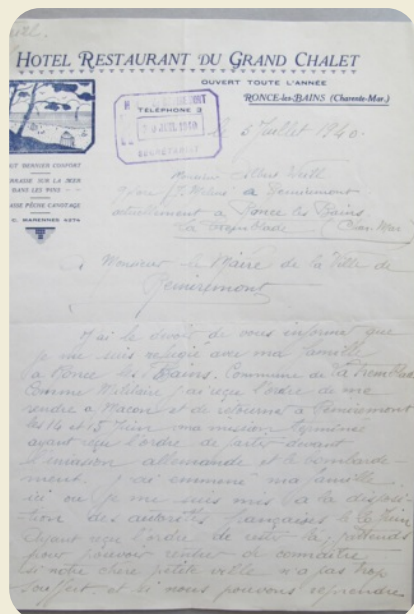 HOTEL RESTAURANT DU GRAND CHALET
OUVERT TOUTE L'ANNÉE
RONCE-les-BAINS (Charente-Mar.)
TÉLÉPHONE 3
SECRÉTARIAT
le 5 Juillet 1940.
DERNIER CONFORT
TERRASSE SUR LA MER
DANS LES PINS
PÊCHE CANOTAGE
R. C. MARENNES 4274
Monsieur Albert Weill
à Remiremont
actuellement à Ronce les Bains
La Tremblade (Char. Mar)
Monsieur le Maire de la Ville de
Remiremont
J'ai le devoir de vous informer que
je me suis réfugié avec ma famille
à Ronce les Bains. Commune de La Tremblade
Comme Militaire j'ai reçu l'ordre de me
rendre à Macon et de retourner à Remiremont
les 14 et 15 Juin ma mission terminée
ayant reçu l'ordre de partir devant
l'invasion allemande et le bombarde-
ment. J'ai emmené ma famille
ici ou je me suis mis à la disposi-
tion des autorités françaises le Juin
ayant reçu l'ordre de rester là, j'attends
pour pouvoir rentrer de connaître
si notre chère petite ville n'a pas trop
souffert, et si nous pouvons reprendre